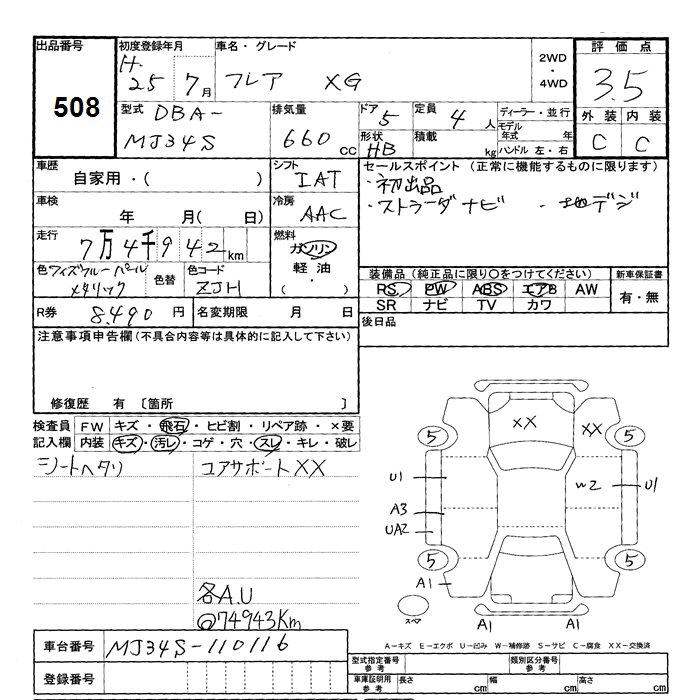 出品番号
508
初度登録年月
H. 25 7月
車名・グレード
フレア XG
2WD
・
4WD
評価点
3.5
型式 DBA-
MJ34S
排気量
660 CC
ドア 5
形状 HB
定員 4 人
積載 kg
ディーラー・並行
モデル年式 年
ハンドル 左・右
外装 内装
C C
車歴
自家用・( )
シフト
IAT
セールスポイント (正常に機能するものに限ります)
・初出品
・ストラーダナビ ・地デジ
車検
年 月( 日)
冷房
AAC
走行
7万4千942km
燃料
ガソリン
軽油
・( )
色 ブルーパール
メタリック
色替
色コード
ZJH
装備品 (純正品に限り○をつけてください)
RS PW ABS エアB AW
SR ナビ TV カワ
新車保証書
有・無
R券 8,490 円
名変期限 月 日
後日品
注意事項申告欄 (不具合内容等は具体的に記入して下さい)
修復歴 有 〔箇所 〕
検査員 FW キズ・飛石・ヒビ割・リペア跡・×要
記入欄 内装 キズ・汚レ・コゲ・穴・スレ・キレ・破レ
シートヘタリ
コアサポートXX
各A.U
@74943Km
XX XX
5 5
U1 W2 U1
A3
UA2
5 5
A1
スペア
A1 A1
A-キズ E-エクボ U-凹み W-補修跡 S-サビ C-腐食 XX-交換済
車台番号 MJ34S-110116
登録番号
型式指定番号 参考
類別区分番号 参考
車庫証明用 参考
長さ cm 幅 cm 高さ cm